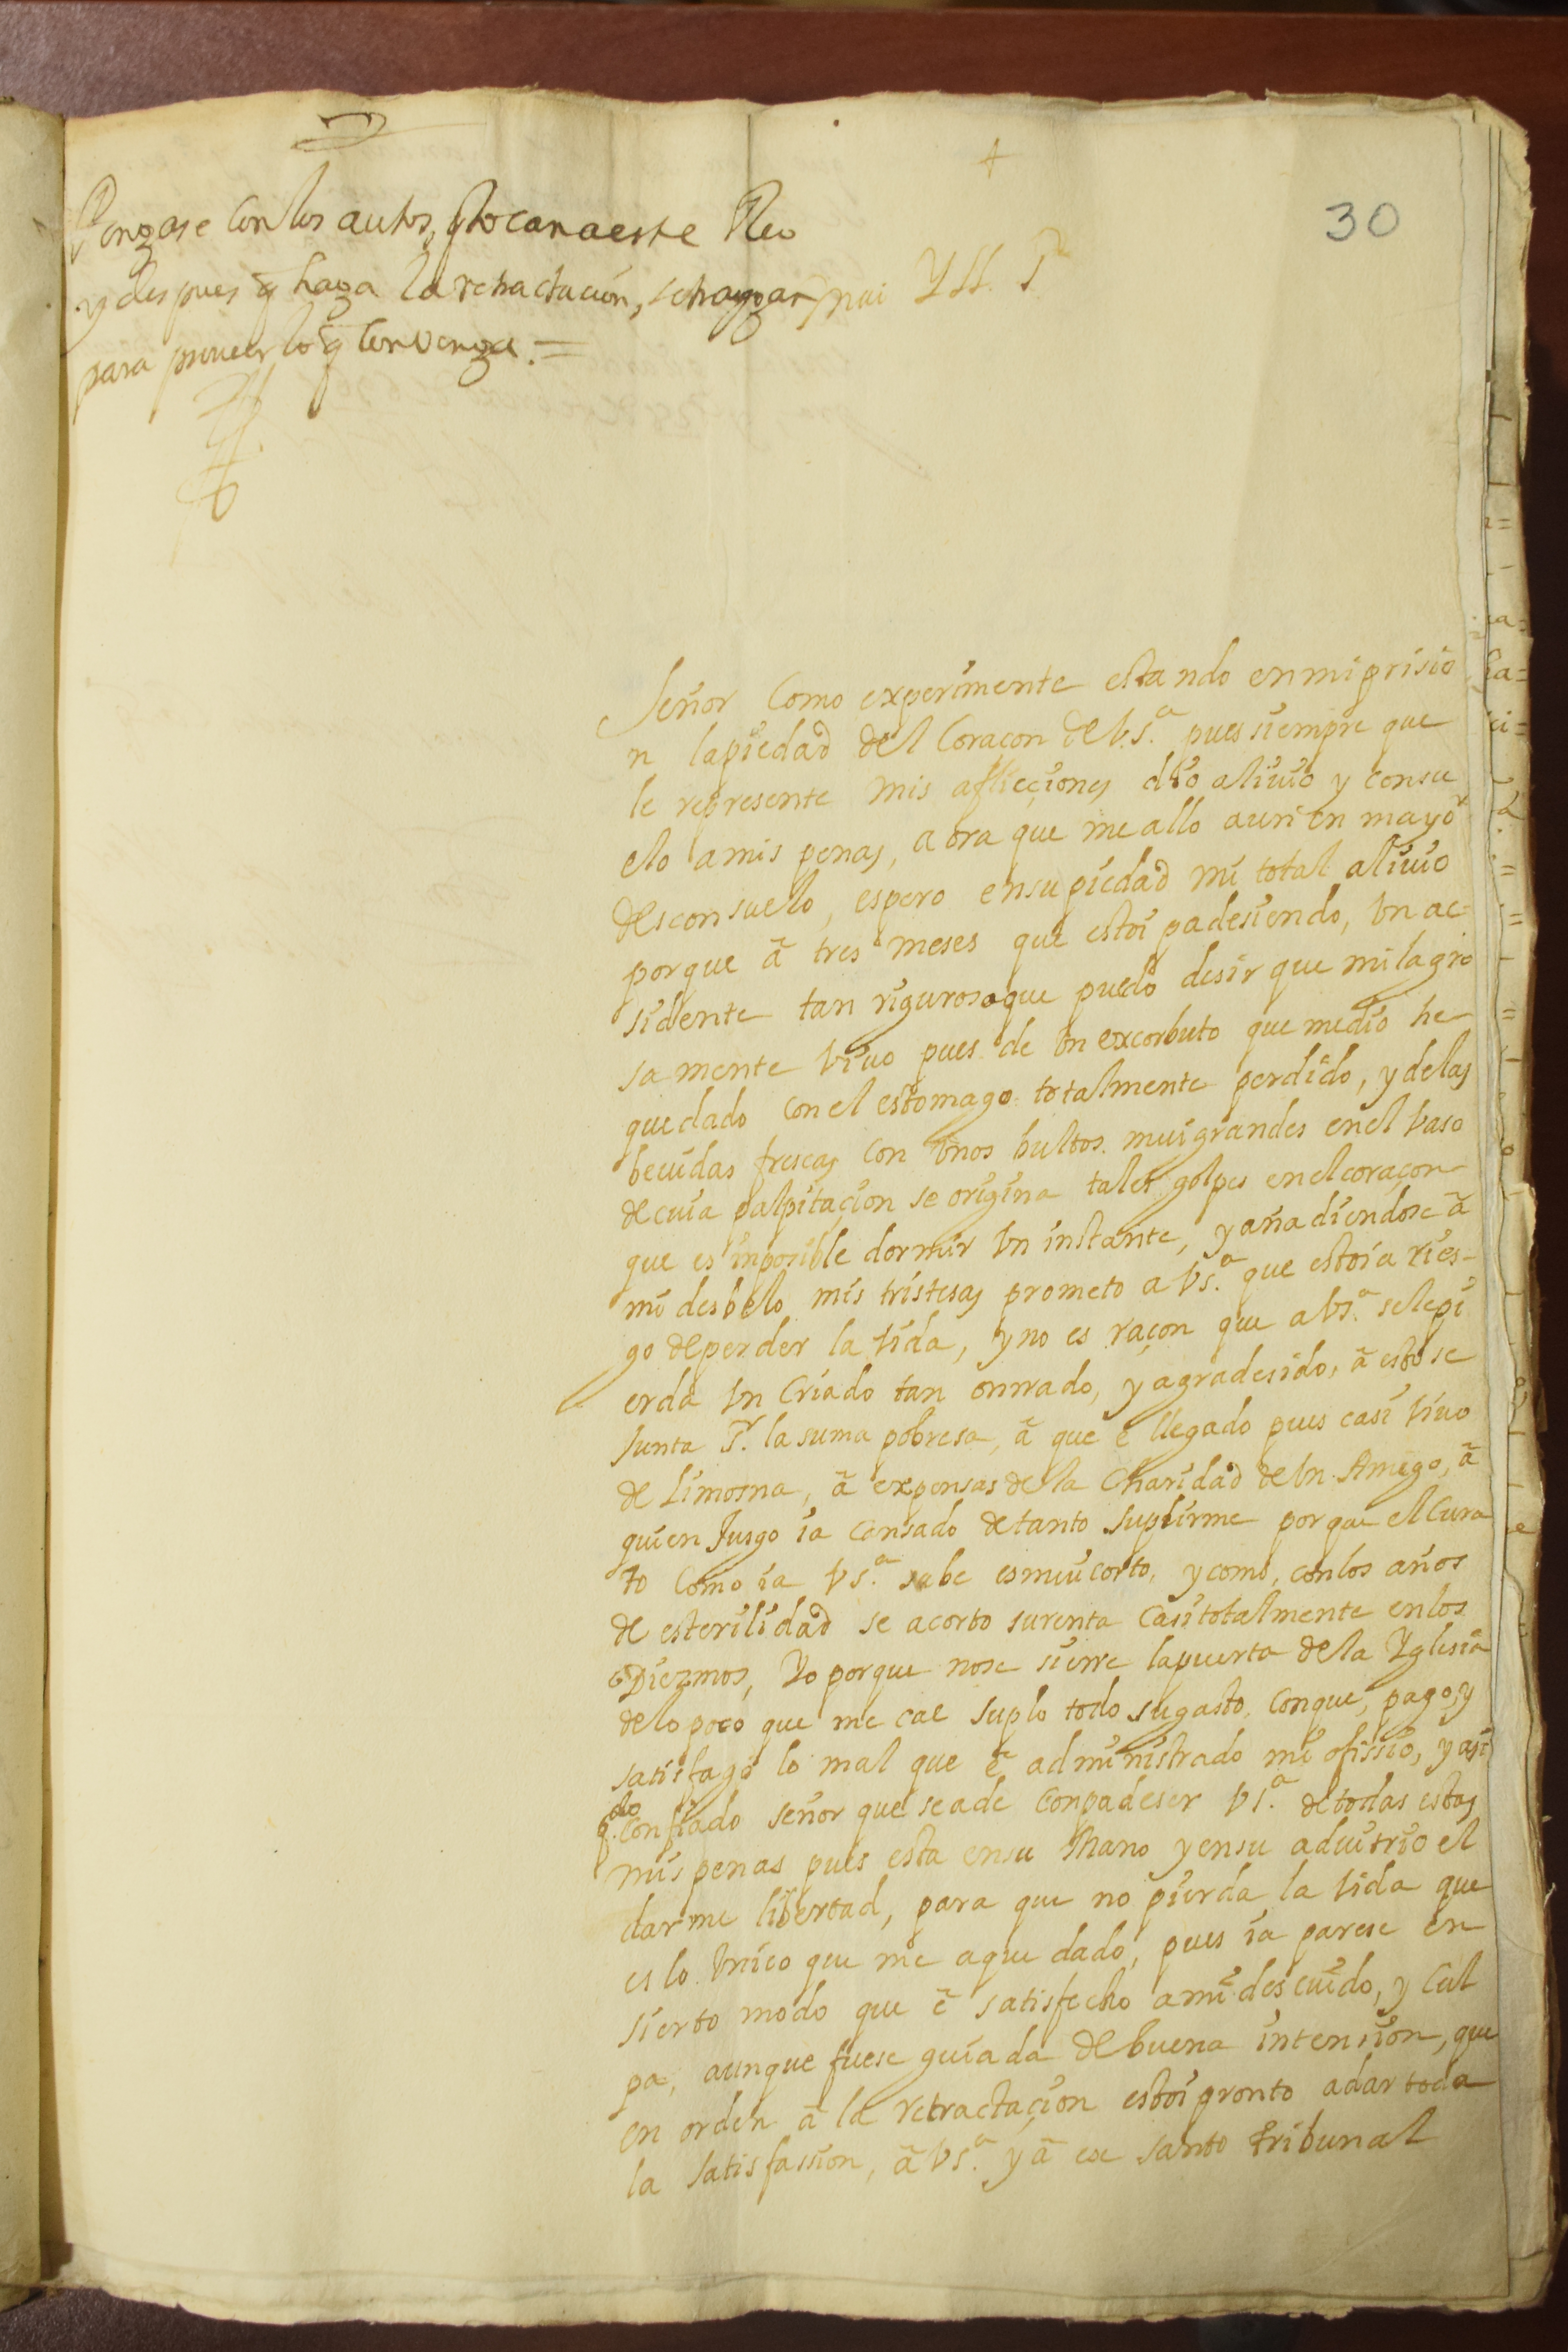 +
30
Pongase con los autos, q tocan a este Reo
y despues q haga la retractacion, se traygan
para proveer lo q convenga. =
mui Yll. Sr
Señor Como experimente estando en mi prisio
n la piedad del Coraçon de V.S.ª pues siempre que
le represente mis aflicçiones dio aliuio y consu
elo a mis penas, aora que me allo aun en mayor
desconsuelo, espero en su piedad mi total aliuio
porque ã tres meses que estoi padesiendo, vn ac=
sidente tan riguroso que puedo desir que milagro
samente viuo pues de vn excorbuto que me dio he
quedado con el estomago totalmente perdido, y de las
beuidas frescas con vnos bultos mui grandes en el vaso
de cuia palpitaçion se origina tales golpes en el coraçon
que es inposible dormir vn instante, y añadiendose ã
mi desbelo mis tristesas prometo a VS.ª que estoi a ries-
go de perder la vida, y no es raçon que a VS.ª se le pi
erda vn Criado tan onrrado, y agradesido, ã esto se
junta Sr. la suma pobresa, ã que ẽ llegado pues casi viuo
de Limosna, ã expensas de la Charidad de vn Amigo, ã
quien Jusgo ia Cansado de tanto suplirme porque el Cura
to Como ia VS.ª sabe es mui corto, y como, con los años
de esterilidad se acorto su renta Casi totalmente en los
Diezmos, Yo porque no se sierre la puerta de la Yglesia
de lo poco que me cae suplo todo su gasto, Conque, pago, y
satisfago lo mal que ẽ administrado mi ofissio, y asi
do
q. Confiado señor que se a de Conpadeser VS.ª de todas estas
mis penas pues esta en su Mano y en su aduitrio el
darme libertad, para que no pierda la vida que
es lo vnico que me a quedado, pues ia parese en
sierto modo que ẽ satisfecho a mi descuido, y Cul
pa, aunque fuese guiada de buena intension, que
en orden ã la retractaçion estoi pronto a dar toda
la satisfassion, ã VS.ª y ã ese santo tribunal